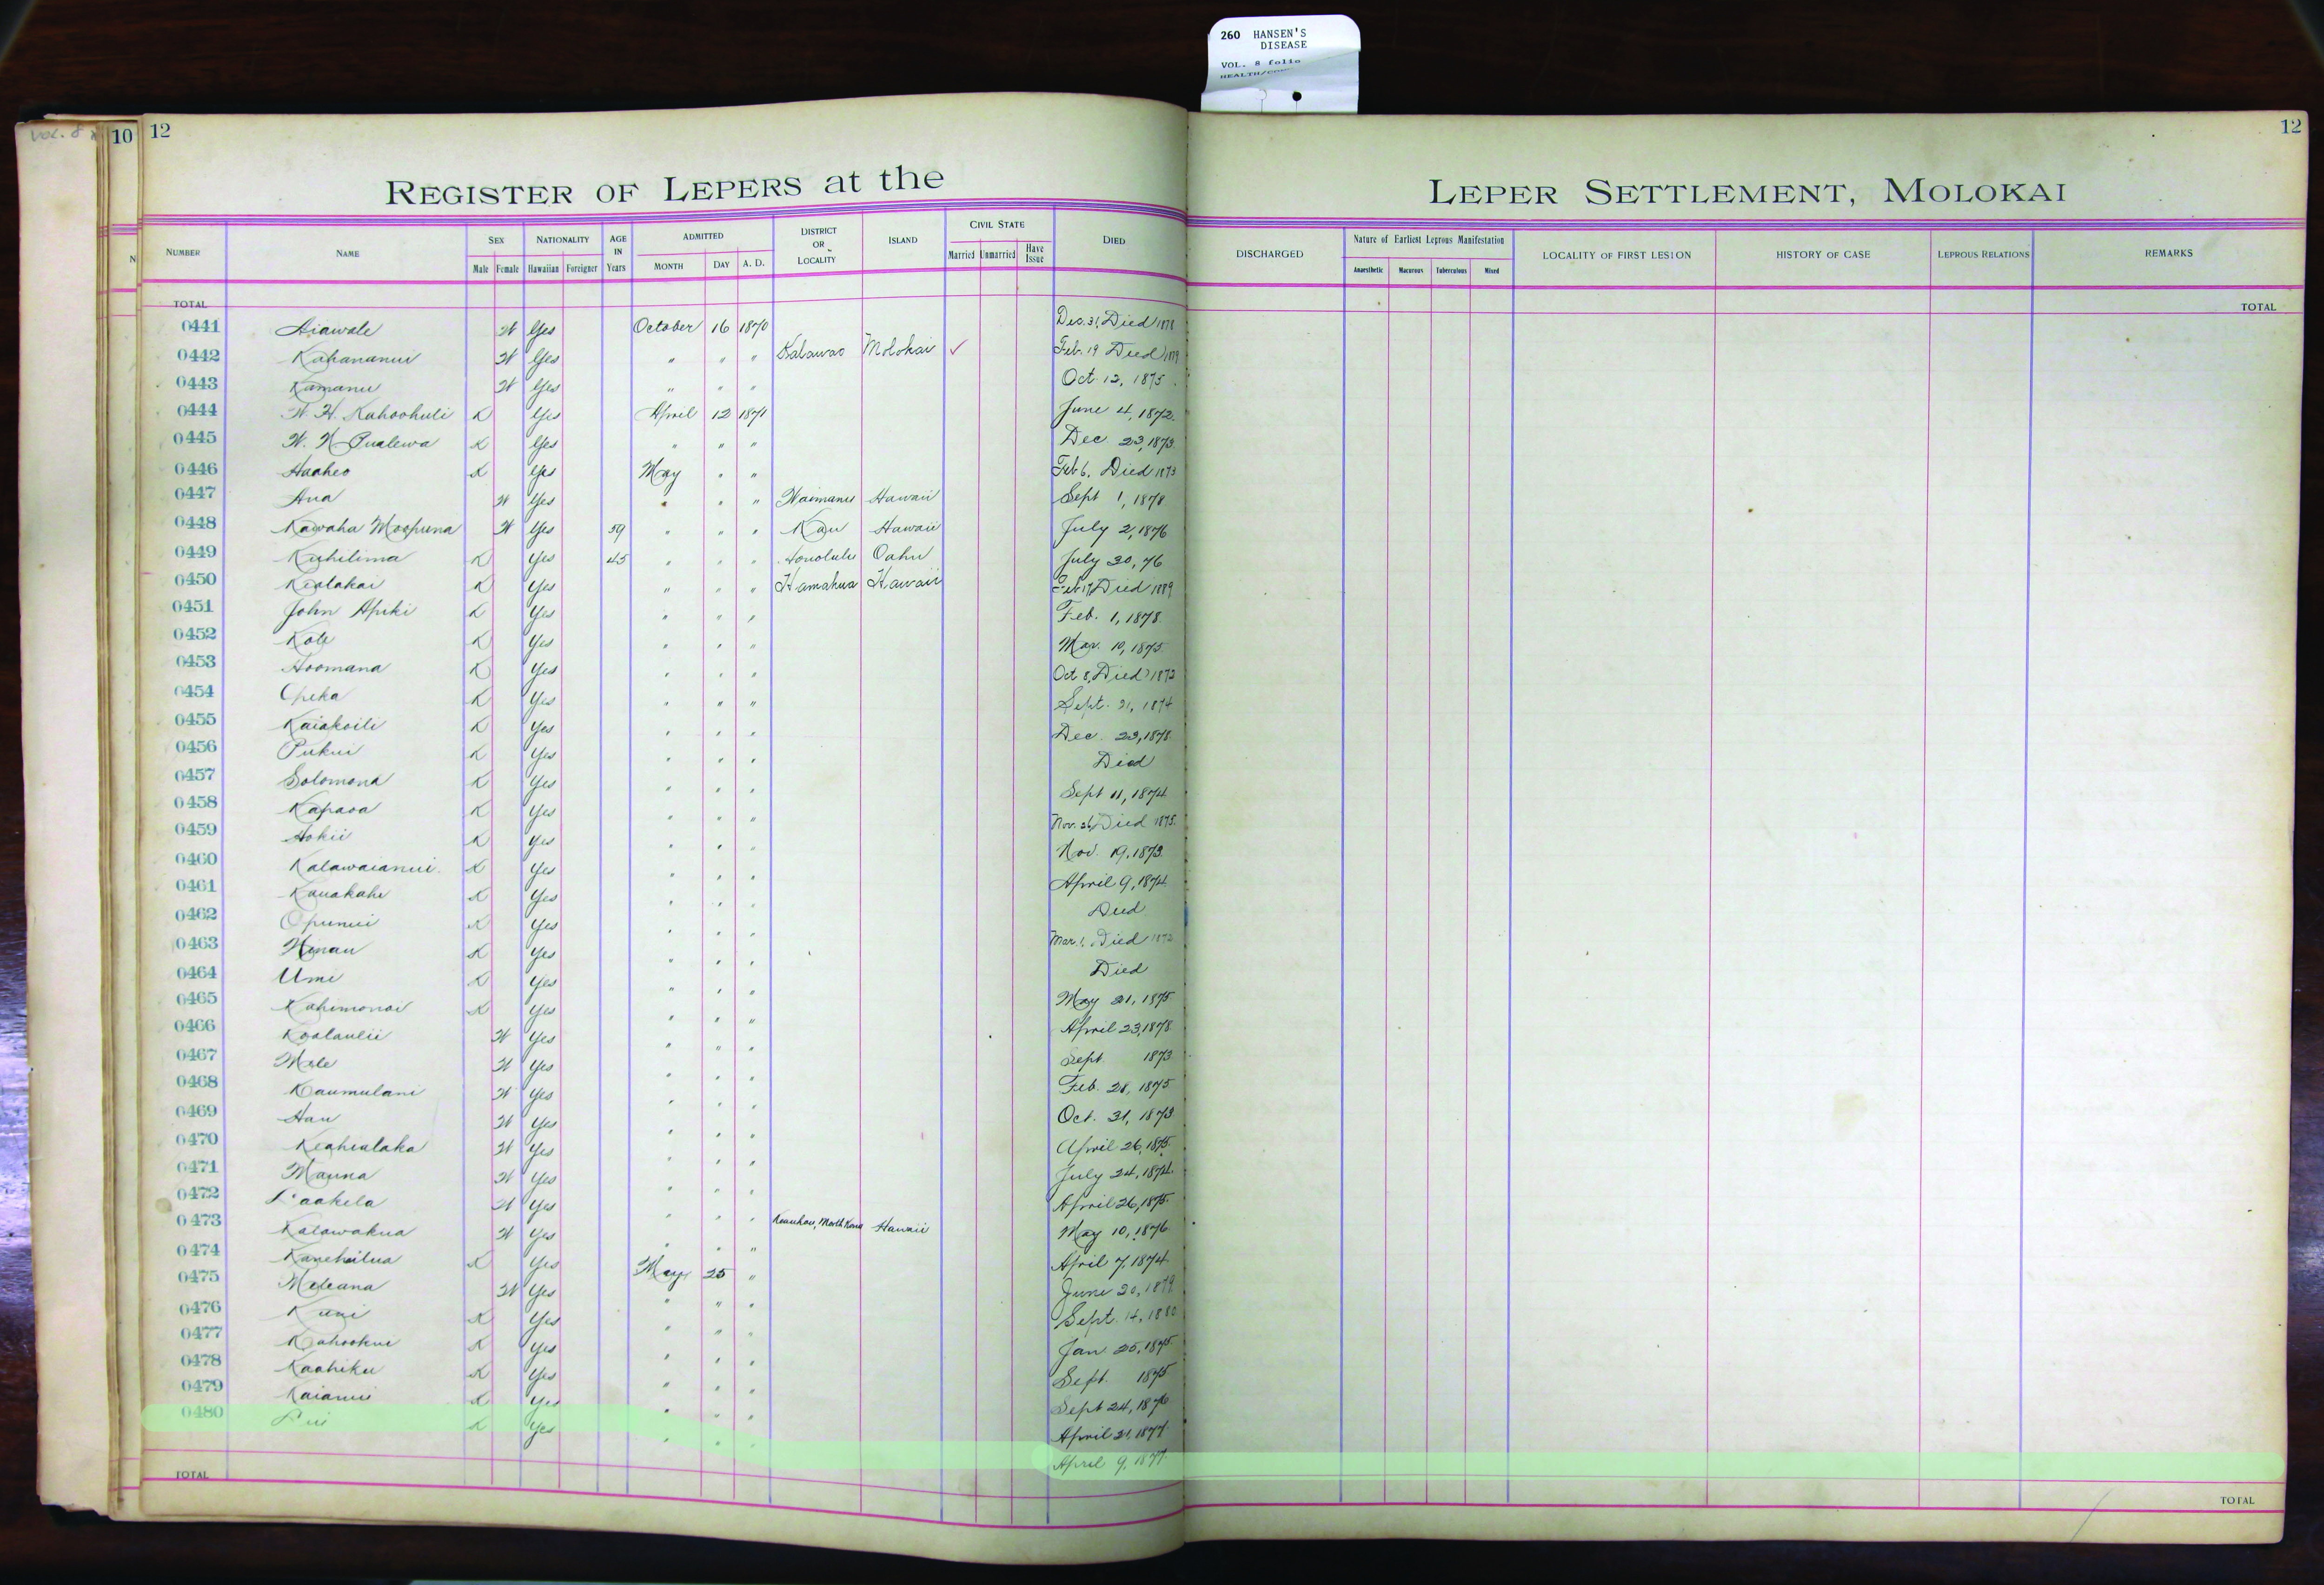 260 HANSEN'S
DISEASE
VOL. 8 folio
10 12
12
REGISTER OF LEPERS at the LEPER SETTLEMENT, MOLOKAI
NUMBER NAME SEX Male Female NATIONALITY Hawaiian Foreigner AGE IN Years ADMITTED MONTH DAY A. D. DISTRICT OR LOCALITY ISLAND CIVIL STATE Married Unmarried Have Issue DIED
DISCHARGED Nature of Earliest Leprous Manifestation Anaesthetic Macurous Tuberculous Mixed LOCALITY OF FIRST LESION HISTORY OF CASE LEPROUS RELATIONS REMARKS
TOTAL TOTAL
0441 Aiawale W Yes October 16 1870 Dec. 31, Died 1878
0442 Kahananui W Yes " " " Kalawao Molokai ✓ Feb. 19 Died
0443 Kamanu W Yes " " " Oct. 12, 1875
0444 W. H. Kahoohuli K Yes April 12 1871 June 4, 1872
0445 W. N. Pualewa K Yes " " " Dec. 23, 1873
0446 Haaheo K Yes May " " Feb 6, Died 1873
0447 Ana W Yes " " " Waimanu Hawaii Sept 1, 1878
0448 Kawaha Moopuna W Yes 59 " " " Kau Hawaii July 2, 1876
0449 Kuhilima K Yes 45 " " " Honolulu Oahu July 30, 76
0450 Kealakai K Yes " " " Hamakua Hawaii Feb 17, Died 1889
0451 John Apiki K Yes " " " Feb. 1, 1878
0452 Kole K Yes " " " Mar. 10, 1875
0453 Hoomana K Yes " " " Oct 8, Died 1873
0454 Opeka K Yes " " " Sept. 21, 1874
0455 Kaiakoili K Yes " " " Dec. 23, 1878
0456 Pukui K Yes " " " Died
0457 Solomona K Yes " " " Sept 11, 1874
0458 Kapaoa K Yes " " " Nov. 26, Died 1875
0459 Hokii K Yes " " " Nov. 19, 1873
0460 Kalawaianui K Yes " " " April 9, 1874
0461 Kauakahi K Yes " " " Died
0462 Opunui K Yes " " " Mar. 1, Died 1873
0463 Hinau K Yes " " " Died
0464 Umi K Yes " " " May 21, 1875
0465 Kahimonoi K Yes " " " April 23, 1878
0466 Koolaulii W Yes " " " Sept 1873
0467 Mele W Yes " " " Feb. 28, 1875
0468 Kaumulani W Yes " " " Oct. 31, 1873
0469 Hau W Yes " " " April 26, 1875
0470 Keahialaka W Yes " " " July 24, 1874
0471 Mauna W Yes " " " April 26, 1875
0472 Laakela W Yes " " " Keauhou, North Kona Hawaii May 10, 1876
0473 Kalawakua W Yes " " " April 7, 1874
0474 Kanehailua K Yes May 25 " June 20, 1879
0475 Meleana W Yes " " " Sept. 14, 1880
0476 Kuni K Yes " " " Jan. 25, 1875
0477 Kahookui K Yes " " " Sept. 1875
0478 Kaahiku K Yes " " " Sept 24, 1876
0479 Kaianui K Yes " " " April 21, 1877
0480 Lui K Yes " " " April 9, 1877
TOTAL TOTAL